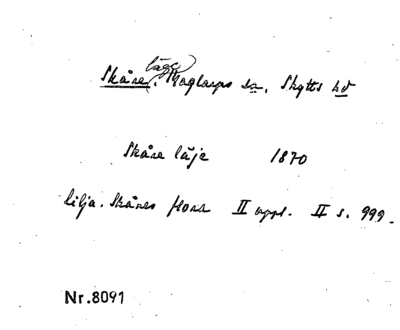 läge
Skåre, Maglarps sn, Skytts hd
Skåre läje 1870
Lilja. Skånes flora II uppl. II s. 999.
Nr.8091